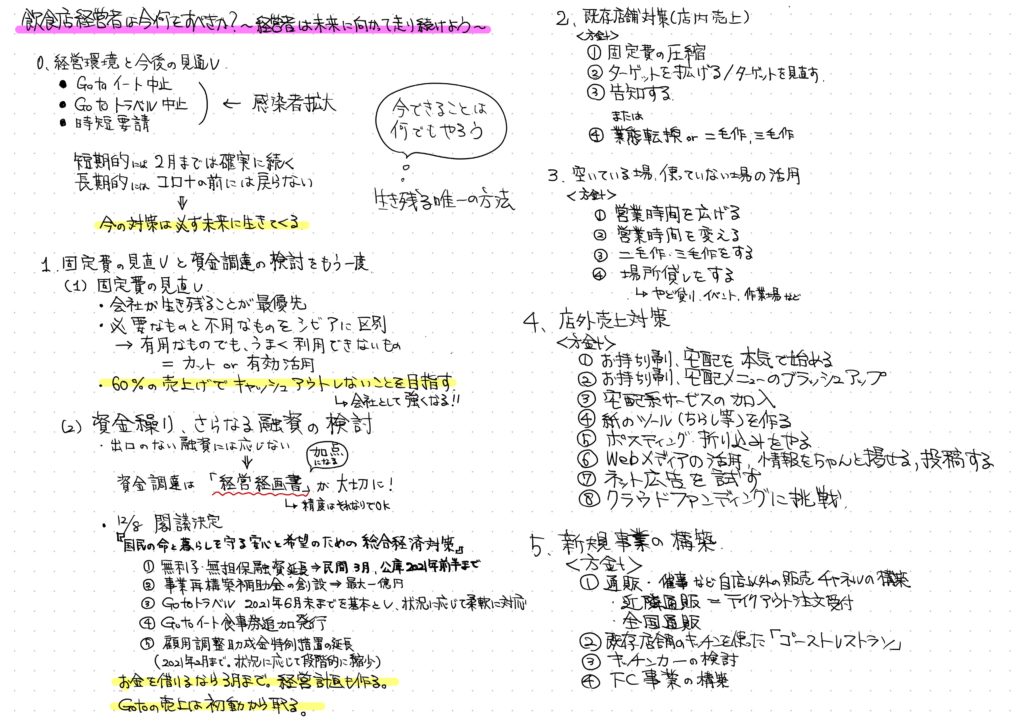 飲食店経営者は今何をすべきか?〜経営者は未来に向かて走り続けよう〜
0. 経営環境と今後の見直し
● Gotoイート中止
● Goto トラベル中止
● 時短要請
← 感染者拡大
短期的には 2月までは確実に続く
長期的には コロナの前には戻らない
⇓
今の対策は必ず未来に生きてくる
今できることは
何でもやろう
生き残る唯一の方法
1. 固定費の見直しと資金調達の検討をもう一度
(1) 固定費の見直し
・会社が生き残ることが最優先
・必要なものと不用なものをシビアに区別
→ 有用なものでも、うまく利用できないもの
= カット or 有効活用
・60%の売上げでキャッシュアウトしないことを目指す
↳会社として強くなる!!
(2) 資金繰り、さらなる融資の検討
・出口のない融資には応じない
⇓
加点になる
資金調達は「経営経画書」が大切に!
↳精度はそれなりでOK
・12/8 閣議決定
『国民の命と暮らしを守る安心と希望のための総合経済対策』
① 無利子・無担保融資延長→民間3月、公庫2021年前半まで
② 事業再構築補助金の創設→最大一億円
③ Gotoトラベル 2021年6月末までを基本とし、状況に応じて柔軟に対応
④ Gotoイート食事券追加発行
⑤ 雇用調整助成金特例措置の延長
(2021年2月まで。状況に応じて段階的に縮少)
お金を借りるなら3月まで。経営計画も作る。
Gotoの売上は初動から取る。
2. 既存店舗対策(店内売上)
<方針>
① 固定費の圧縮
② ターゲットを拡げる/ターゲットを見直す
③ 告知する
または
④ 業態転換 or 二毛作,三毛作
3. 空いている場、使っていない場の活用
<方針>
① 営業時間を広げる
② 営業時間を変える
③ 二毛作・三毛作をする
④ 場所貸しをする
↳ やど貸り、イベント、作業場など
4、店外売上対策
<方針>
① お持ち帰り、宅配を本気で始める
② お持ち帰り、宅配メニューのブラッシュアップ
③ 宅配系サービスの加入
④ 紙のツール(ちらし等)を作る
⑤ ポスティング・折り込みをやる
⑥ Webメディアの活用,情報をちゃんと掲せる,投稿する
⑦ ネット広告を試す
⑧ クラウドファンディングに挑戦
5、新規事業の構築
<方針>
① 通販・催事など自店以外の販売チャネルの構築
・近隣通販=テイクアウト注文受付
・全国通販
② 既存店舗のキッチンを使った「ゴーストレストラン」
③ キッチンカーの検討
④ FC事業の構築